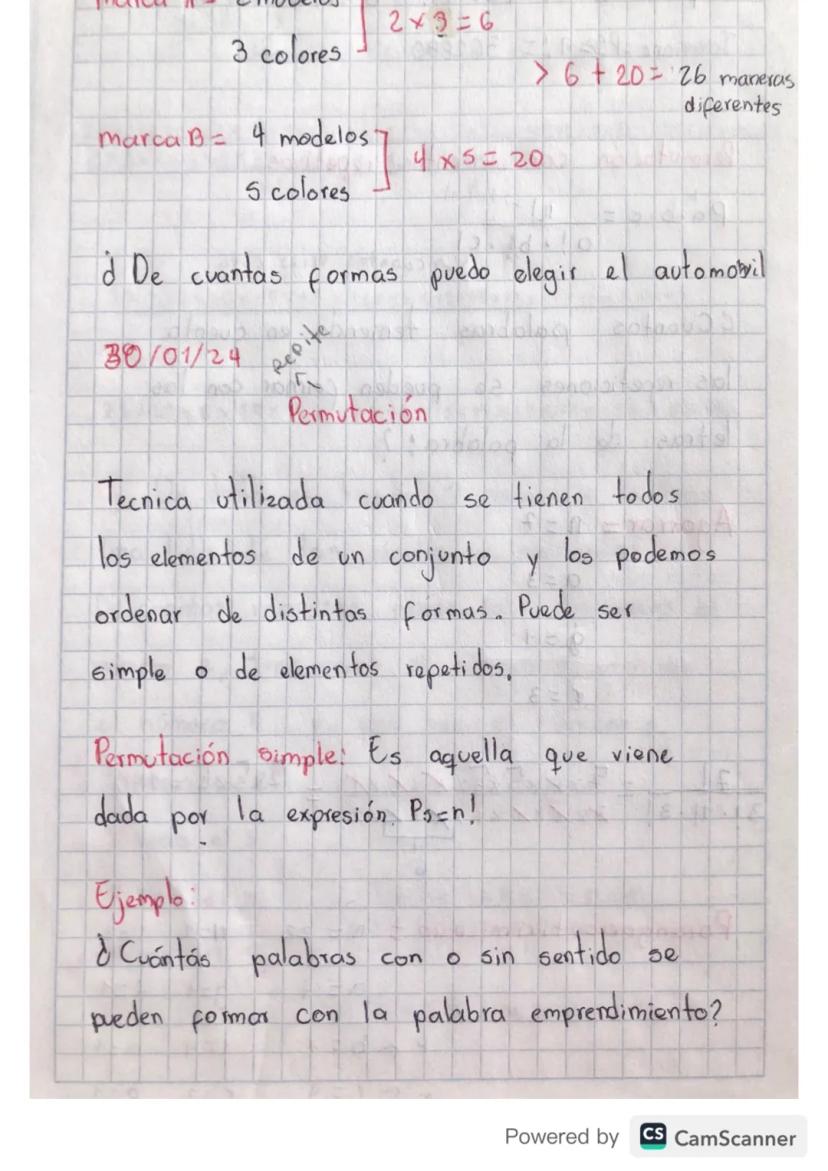 marca A = 2 modelos
2 x 3 = 6
3 colores
> 6 + 20 = 26 maneras
diferentes
marca B = 4 modelos
4 x 5 = 20
5 colores
¿ De cuantas formas puedo elegir el automovil
30/01/24
repite
Permutación
Tecnica utilizada cuando se tienen todos
los elementos de un conjunto y los podemos
ordenar de distintas formas. Puede ser
simple o de elementos repetidos.
Permutación simple: Es aquella que viene
dada por la expresión. Ps=n!
Ejemplo:
¿Cuántás palabras con o sin sentido se
pueden formar con la palabra emprendimiento?
Powered by CS CamScanner